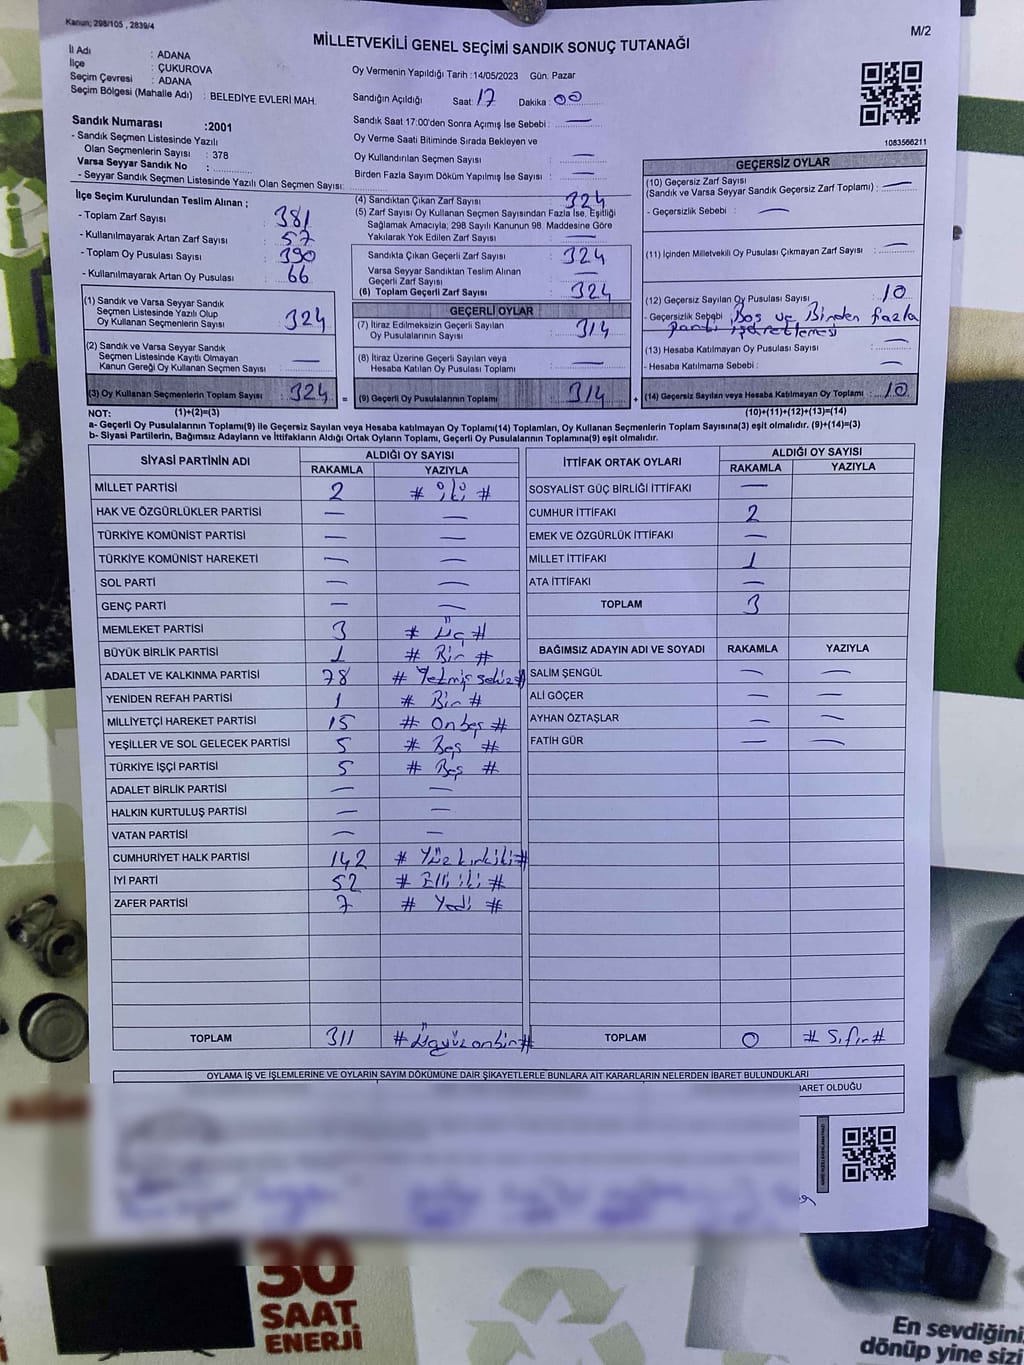 Kanun; 298/105 , 2839/4
M/2
MİLLETVEKİLİ GENEL SEÇİMİ SANDIK SONUÇ TUTANAĞI
İl Adı : ADANA
İlçe : ÇUKUROVA
Seçim Çevresi : ADANA
Seçim Bölgesi (Mahalle Adı) : BELEDİYE EVLERİ MAH.
Sandık Numarası :2001
- Sandık Seçmen Listesinde Yazılı
Olan Seçmenlerin Sayısı : 378
Varsa Seyyar Sandık No :
- Seyyar Sandık Seçmen Listesinde Yazılı Olan Seçmen Sayısı:
Oy Vermenin Yapıldığı Tarih :14/05/2023 Gün: Pazar
Sandığın Açıldığı Saat: 17 Dakika : 00
Sandık Saat 17:00'den Sonra Açımış İse Sebebi : —
Oy Verme Saati Bitiminde Sırada Bekleyen ve
Oy Kullandırılan Seçmen Sayısı : —
Birden Fazla Sayım Döküm Yapılmış İse Sayısı : —
1083566211
İlçe Seçim Kurulundan Teslim Alınan ;
- Toplam Zarf Sayısı : 381
- Kullanılmayarak Artan Zarf Sayısı : 57
- Toplam Oy Pusulası Sayısı : 390
- Kullanılmayarak Artan Oy Pusulası : 66
(1) Sandık ve Varsa Seyyar Sandık
Seçmen Listesinde Yazılı Olup
Oy Kullanan Seçmenlerin Sayısı : 324
(2) Sandık ve Varsa Seyyar Sandık
Seçmen Listesinde Kayıtlı Olmayan
Kanun Gereği Oy Kullanan Seçmen Sayısı : —
(3) Oy Kullanan Seçmenlerin Toplam Sayısı : 324
(4) Sandıktan Çıkan Zarf Sayısı : 324
(5) Zarf Sayısı Oy Kullanan Seçmen Sayısından Fazla İse, Eşitliği
Sağlamak Amacıyla; 298 Sayılı Kanunun 98. Maddesine Göre
Yakılarak Yok Edilen Zarf Sayısı : —
Sandıkta Çıkan Geçerli Zarf Sayısı : 324
Varsa Seyyar Sandıktan Teslim Alınan
Geçerli Zarf Sayısı : —
(6) Toplam Geçerli Zarf Sayısı : 324
GEÇERLİ OYLAR
(7) İtiraz Edilmeksizin Geçerli Sayılan
Oy Pusulalarının Sayısı : 314
(8) İtiraz Üzerine Geçerli Sayılan veya
Hesaba Katılan Oy Pusulası Toplamı : —
= (9) Geçerli Oy Pusulalarının Toplamı : 314
GEÇERSİZ OYLAR
(10) Geçersiz Zarf Sayısı
(Sandık ve Varsa Seyyar Sandık Geçersiz Zarf Toplamı) : —
- Geçersizlik Sebebi : —
(11) İçinden Milletvekili Oy Pusulası Çıkmayan Zarf Sayısı : —
(12) Geçersiz Sayılan Oy Pusulası Sayısı : 10
- Geçersizlik Sebebi : Boş ve Birden fazla
parti işaretlemesi
(13) Hesaba Katılmayan Oy Pusulası Sayısı : —
- Hesaba Katılmama Sebebi : —
+ (14) Geçersiz Sayılan veya Hesaba Katılmayan Oy Toplamı : 10
NOT: (1)+(2)=(3)
(10)+(11)+(12)+(13)=(14)
a- Geçerli Oy Pusulalarının Toplamı(9) ile Geçersiz Sayılan veya Hesaba katılmayan Oy Toplamı(14) Toplamları, Oy Kullanan Seçmenlerin Toplam Sayısına(3) eşit olmalıdır. (9)+(14)=(3)
b- Siyasi Partilerin, Bağımsız Adayların ve İttifakların Aldığı Ortak Oyların Toplamı, Geçerli Oy Pusulalarının Toplamına(9) eşit olmalıdır.
SİYASİ PARTİNİN ADI ALDIĞI OY SAYISI
RAKAMLA YAZIYLA
MİLLET PARTİSİ 2 # iki #
HAK VE ÖZGÜRLÜKLER PARTİSİ — —
TÜRKİYE KOMÜNİST PARTİSİ — —
TÜRKİYE KOMÜNİST HAREKETİ — —
SOL PARTİ — —
GENÇ PARTİ — —
MEMLEKET PARTİSİ 3 # Üç #
BÜYÜK BİRLİK PARTİSİ 1 # Bir #
ADALET VE KALKINMA PARTİSİ 78 # Yetmiş sekiz #
YENİDEN REFAH PARTİSİ 1 # Bir #
MİLLİYETÇİ HAREKET PARTİSİ 15 # Onbeş #
YEŞİLLER VE SOL GELECEK PARTİSİ 5 # Beş #
TÜRKİYE İŞÇİ PARTİSİ 5 # Beş #
ADALET BİRLİK PARTİSİ — —
HALKIN KURTULUŞ PARTİSİ — —
VATAN PARTİSİ — —
CUMHURİYET HALK PARTİSİ 142 # Yüzkırkiki #
İYİ PARTİ 52 # Elli iki #
ZAFER PARTİSİ 7 # Yedi #
TOPLAM 311 # Üçyüzonbir #
İTTİFAK ORTAK OYLARI ALDIĞI OY SAYISI
RAKAMLA YAZIYLA
SOSYALİST GÜÇ BİRLİĞİ İTTİFAKI —
CUMHUR İTTİFAKI 2
EMEK VE ÖZGÜRLÜK İTTİFAKI —
MİLLET İTTİFAKI 1
ATA İTTİFAKI —
TOPLAM 3
BAĞIMSIZ ADAYIN ADI VE SOYADI RAKAMLA YAZIYLA
SALİM ŞENGÜL — —
ALİ GÖÇER — —
AYHAN ÖZTAŞLAR — —
FATİH GÜR — —
TOPLAM 0 # Sıfır #
OYLAMA İŞ VE İŞLEMLERİNE VE OYLARIN SAYIM DÖKÜMÜNE DAİR ŞİKAYETLERLE BUNLARA AİT KARARLARIN NELERDEN İBARET BULUNDUKLARI
BARET OLDUĞU
30
SAAT
ENERJİ
En sevdiğini
dönüp yine sizi